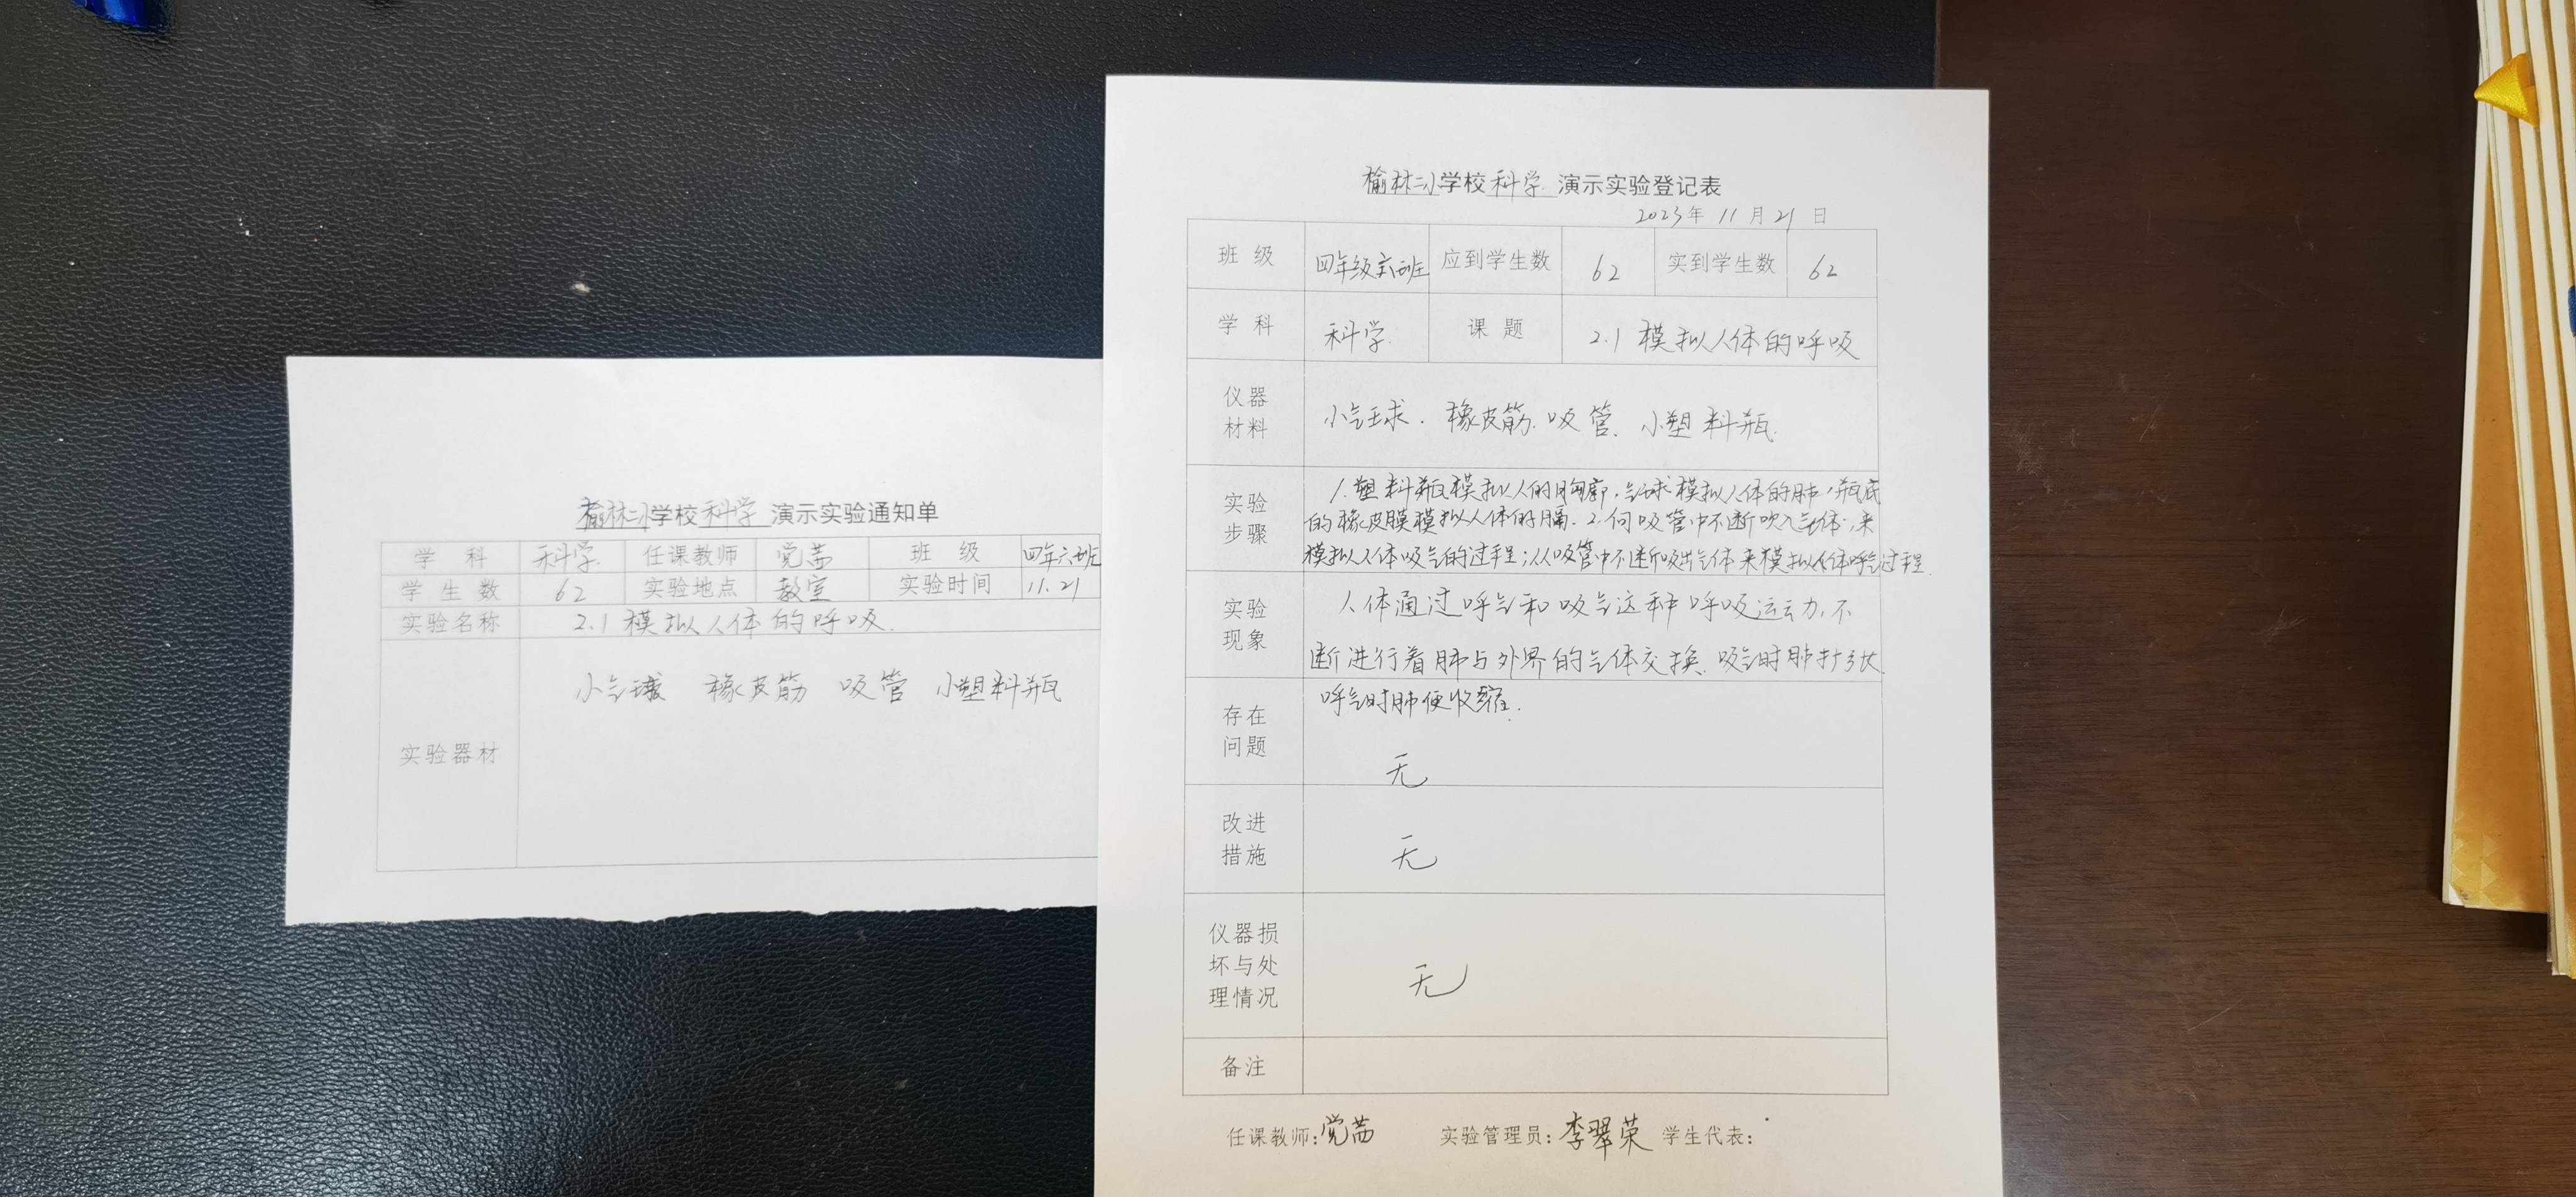 榆林二小学校科学 演示实验通知单
学 科 科学 任课教师 党茜 班 级 四年六班
学 生 数 62 实验地点 教室 实验时间 11.21
实验名称 2.1 模拟人体的呼吸.
实验器材 小气球 橡皮筋 吸管 小塑料瓶
榆林二小学校科学 演示实验登记表
2023年 11 月 21 日
班 级 四年级六班 应到学生数 62 实到学生数 62
学 科 科学 课 题 2.1 模拟人体的呼吸
仪器
材料
小气球. 橡皮筋. 吸管. 小塑料瓶.
实验
步骤
1.塑料瓶模拟人的胸廓,气球模拟人体的肺,瓶底
的橡皮膜模拟人体的膈. 2.向吸管中不断吹入气体,来
模拟人体吸气的过程;从吸管中不断吸出气体来模拟人体呼气过程.
实验
现象
人体通过呼气和吸气这种呼吸运动,不
断进行着肺与外界的气体交换.吸气时肺扩张.
呼气时肺便收缩.
存在
问题
无
改进
措施
无
仪器损
坏与处
理情况
无
备注
任课教师:党茜 实验管理员:李翠荣 学生代表: